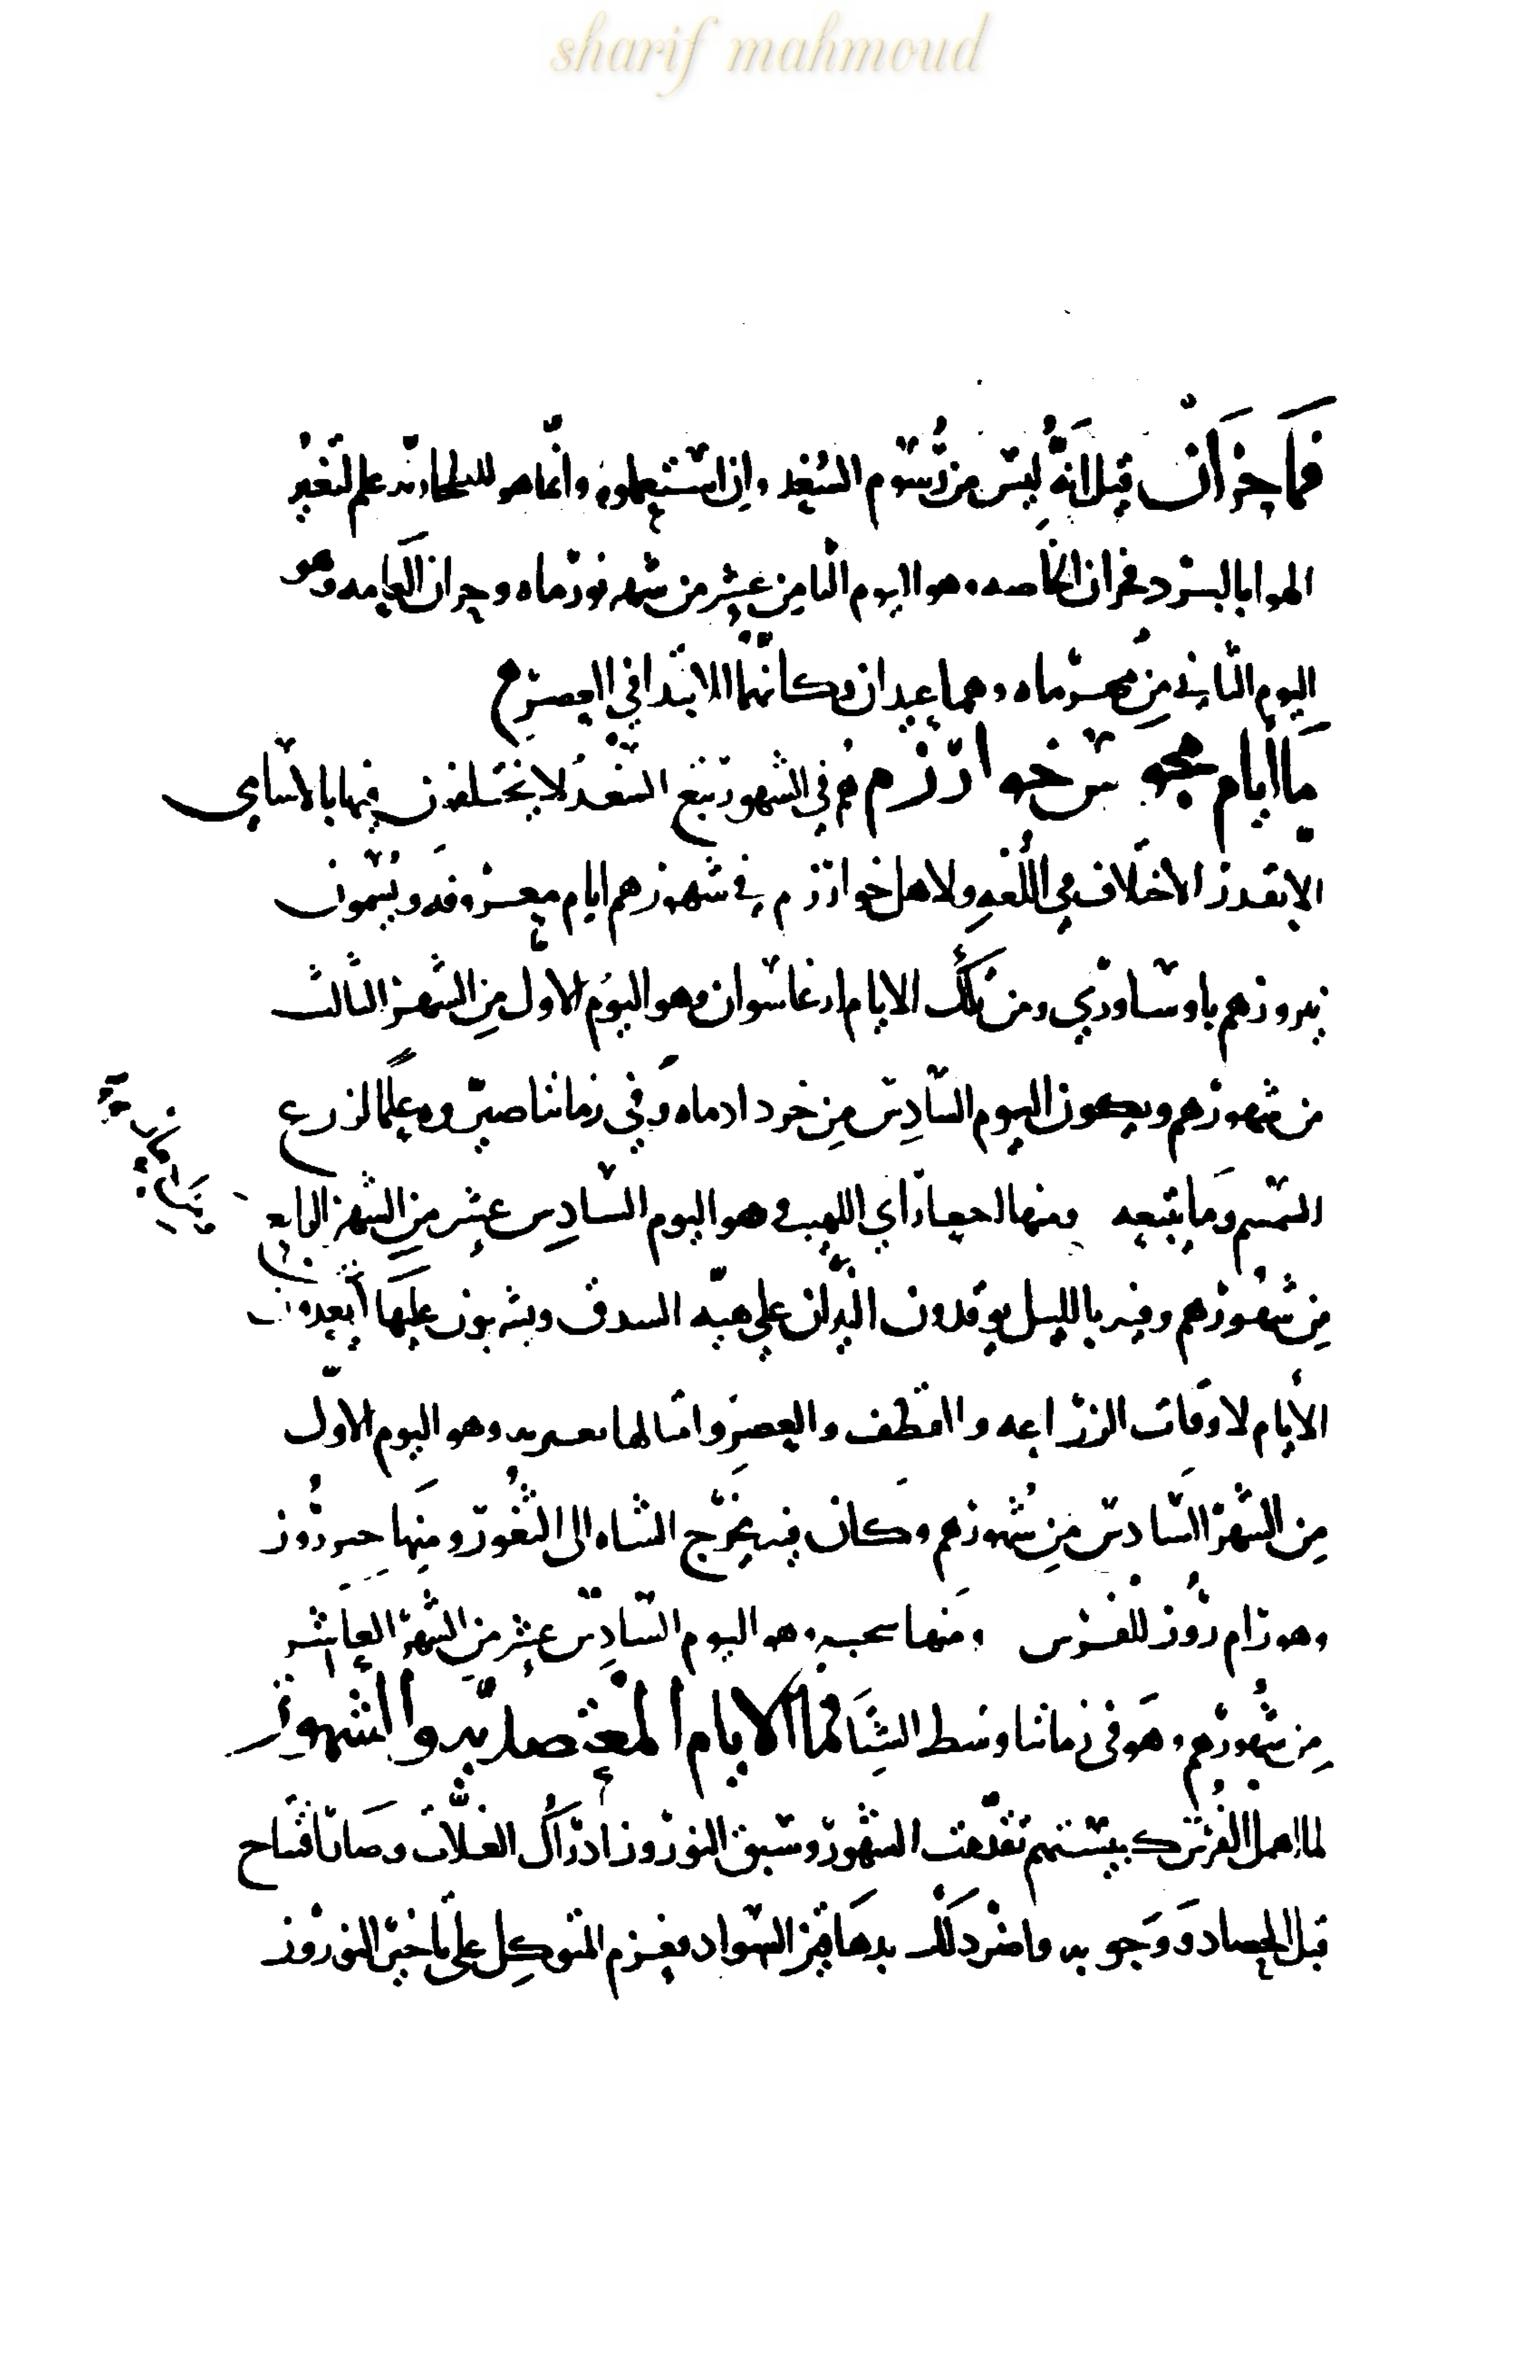 sharif mahmoud
فما خزان قيل انه ليس من رسوم السغد وان استعملوه وانما هو للطخارية علم لتغير
الهوا بالبرد فخزان الخاصه وهو اليوم الثامن عشر من شهر نور ماه و خزان العامه وهو
اليوم الثاني من مهر ماه وهما عيدان وكانهما الابتدا في العصر ح
ما ايام مجوس خوارزم فهم في الشهور تبع السغد لا يختلفون فيها بالاسامي
الا بقدر الاختلاف في اللغه ولاهل خوارزم في شهورهم ايام معروفه ويسمون
نيروزهم باوساوردي ومن تلك الايام ارغاسوان وهو اليوم الاول من الشهر الثالث
من شهورهم ويكون اليوم السادس من خرداد ماه وفي زماننا صيروه علما لزرع
السمسم وما يتبعه ومنها اي اللهب وهو اليوم السادس عشر من الشهر الرابع
من شهورهم وفيه بالليل يوقدون النيران على هيه السدق ويشربون عليها يعدون
الايام لاوقات الزراعه والقطف والعصر وامثالها وهو اليوم الاول
من الشهر السادس من شهورهم وكان فيه يخرج الشاه الى الثغور ومنها روز
وهو رام روز للفرس ومنها وهو اليوم السادس عشر من الشهر العاشر
من شهورهم وهو في زماننا وسط الشتا فما الايام المعتضديه والشهور
لما اهمل الفرس كبيستهم تقدمت الشهور وسبق النوروز ادراك الغلات وصار افتتاح
قبل الحصاد ووجوبه واضر ذلك بدهاقين السواد فعزم المتوكل على تاخير النوروز